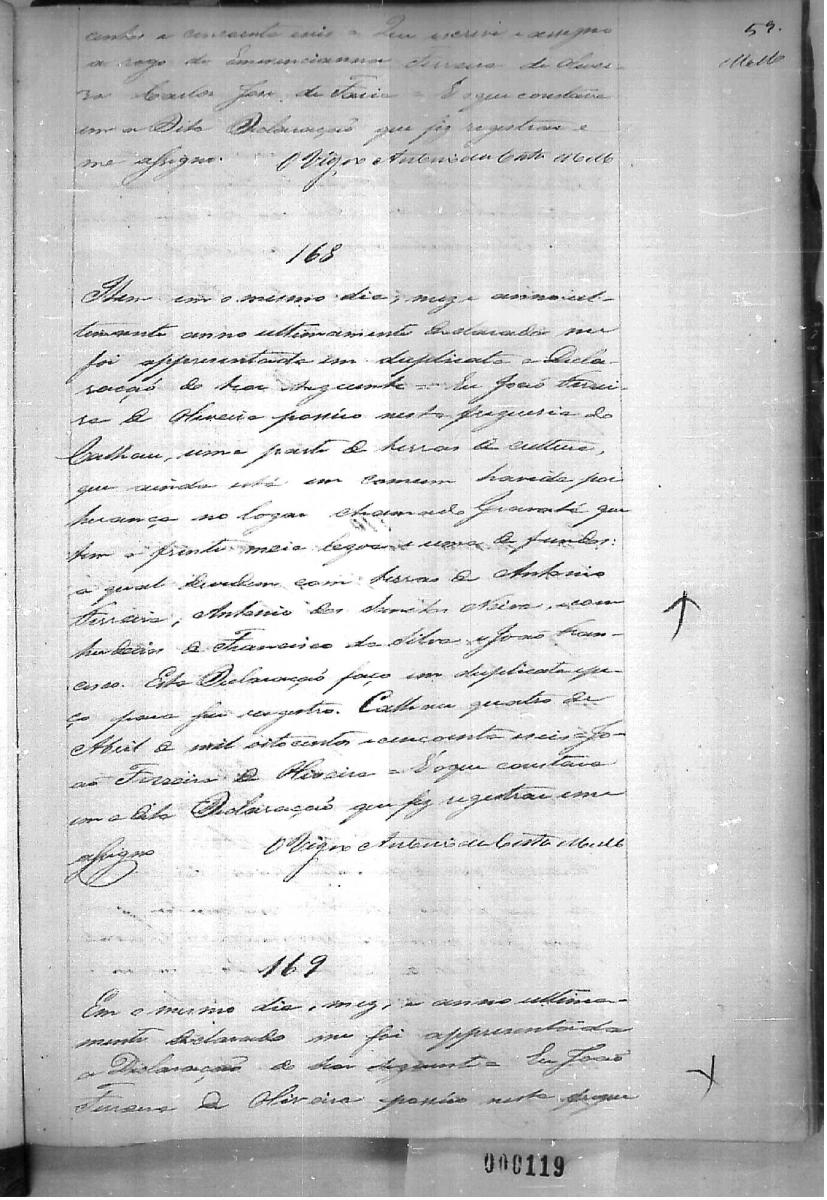 59.
Mello
centos e cincoenta e seis = Que escrevi e assigno
a rogo de Emerenciana Ferreira de Olivei-
ra Carlos José de Faria = E o que constava
em a Dita Declaração que fiz registrar e
me assigno. O Vigro Antonio da Costa Mello
168
Item em o mesmo dia, mez e anno ul-
timamente anno ultimamente declarado me
foi appresentada em duplicata a Decla-
ração do theor seguinte = Eu João Ferrei-
ra de Oliveira possuo nesta freguesia do
Calhau, uma parte de terras de cultura,
que ainda está em comum havida por
herança no logar chamado Gravatá que
tem de frente meia legoa e uma de fundos:
a qual devidem com terras de Antonio
Ferreira, Antonio dos Santos Neiva, e com
herdeiros de Francisco da Silva e João Fran-
cisco. Esta Declaração faço em duplicata e pe-
ço para ser registro. Calhau quatro de
Abril de mil oitocentos e cincoenta e seis = Jo-
ao Ferreira de Oliveira = E o que constava
em a dita Declaração que fiz registrar e me
assigno O Vigro Antonio da Costa Mello
169
Em o mesmo dia, mez, e anno ultima-
mente declarado me foi appresentada
a Declaração do theor seguinte = Eu João
Ferreira de Oliveira possuo nesta fregue
000119